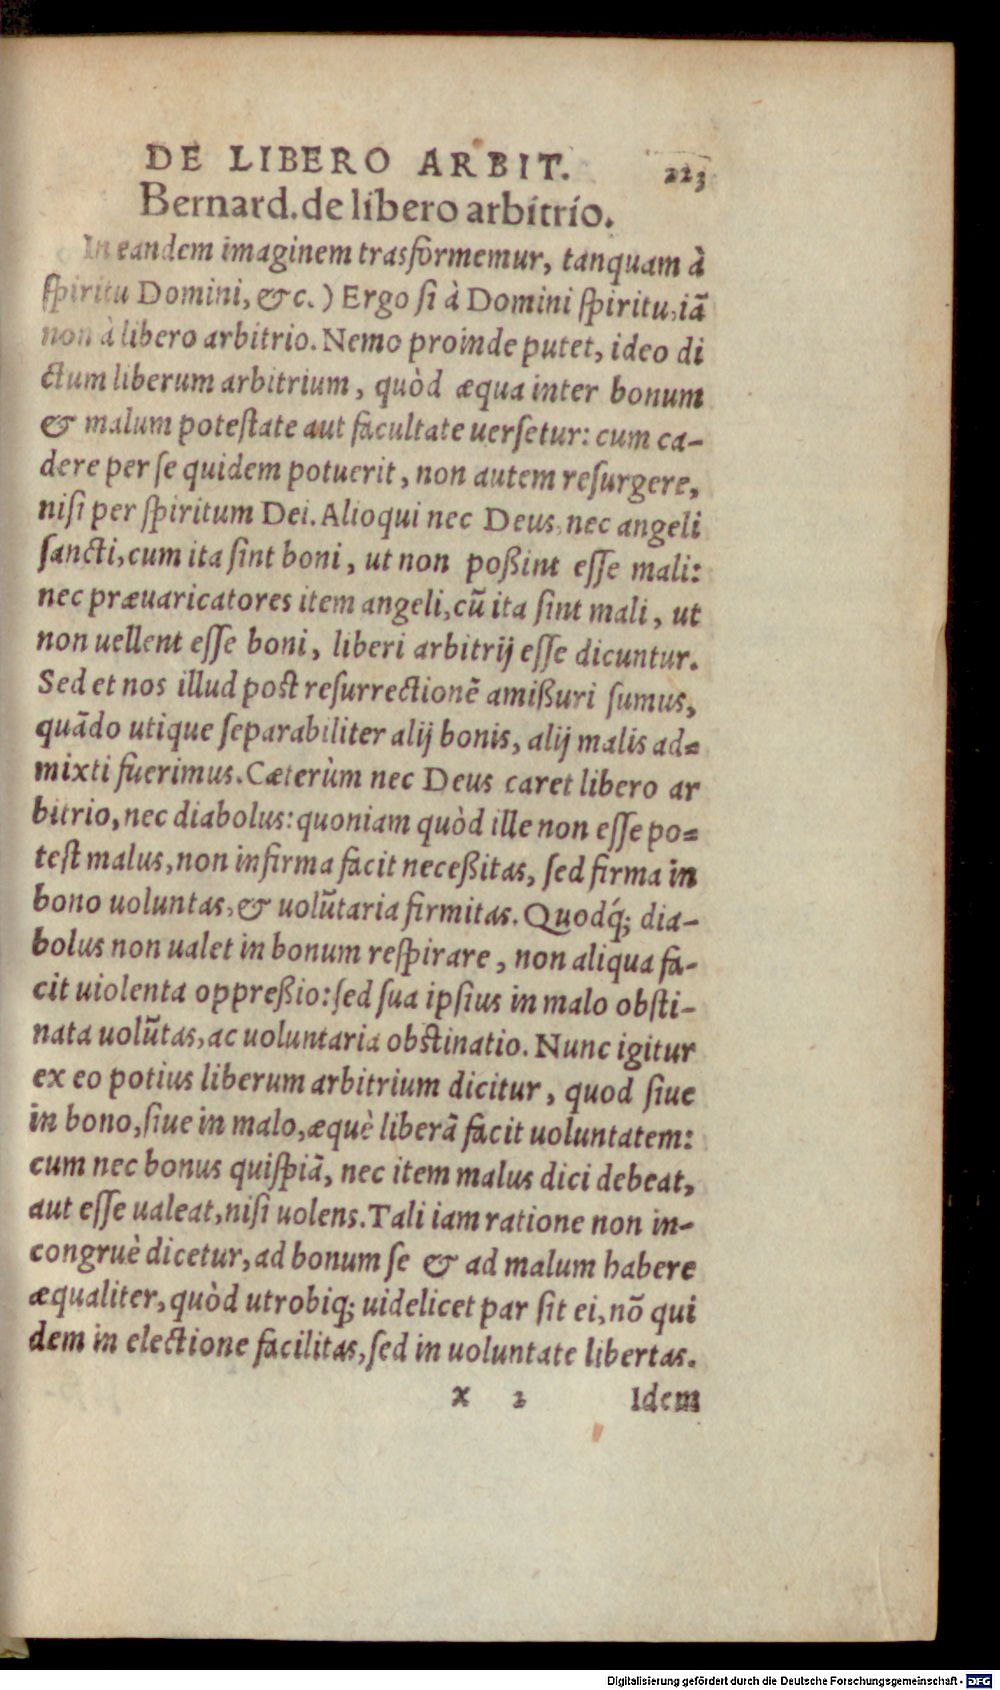 DE LIBERO ARBIT. 223
Bernard. de libero arbitrio.
In eandem imaginem trasformemur, tanquam à
spiritu Domini, &c.) Ergo si à Domini spiritu, iã
non à libero arbitrio. Nemo proinde putet, ideo di
ctum liberum arbitrium, quòd æqua inter bonum
& malum potestate aut facultate uersetur: cum ca-
dere per se quidem potuerit, non autem resurgere,
nisi per spiritum Dei. Alioqui nec Deus, nec angeli
sancti, cum ita sint boni, ut non poßint esse mali:
nec præuaricatores item angeli, cũ ita sint mali, ut
non uellent esse boni, liberi arbitrij esse dicuntur.
Sed et nos illud post resurrectionẽ amißuri sumus,
quãdo utique separabiliter alij bonis, alij malis ad=
mixti fuerimus. Cæterùm nec Deus caret libero ar
bitrio, nec diabolus: quoniam quòd ille non esse po=
test malus, non infirma facit neceßitas, sed firma in
bono uoluntas, & uolũtaria firmitas. Quodq́; dia-
bolus non ualet in bonum respirare, non aliqua fa-
cit uiolenta oppreßio: sed sua ipsius in malo obsti-
nata uolũtas, ac uoluntaria obstinatio. Nunc igitur
ex eo potius liberum arbitrium dicitur, quod siue
in bono, siue in malo, æquè liberã facit uoluntatem:
cum nec bonus quispiã, nec item malus dici debeat,
aut esse ualeat, nisi uolens. Tali iam ratione non in-
congruè dicetur, ad bonum se & ad malum habere
æqualiter, quòd utrobiq; uidelicet par sit ei, nõ qui
dem in electione facilitas, sed in uoluntate libertas.
x 2 Idem
Digitalisierung gefördert durch die Deutsche Forschungsgemeinschaft - DFG